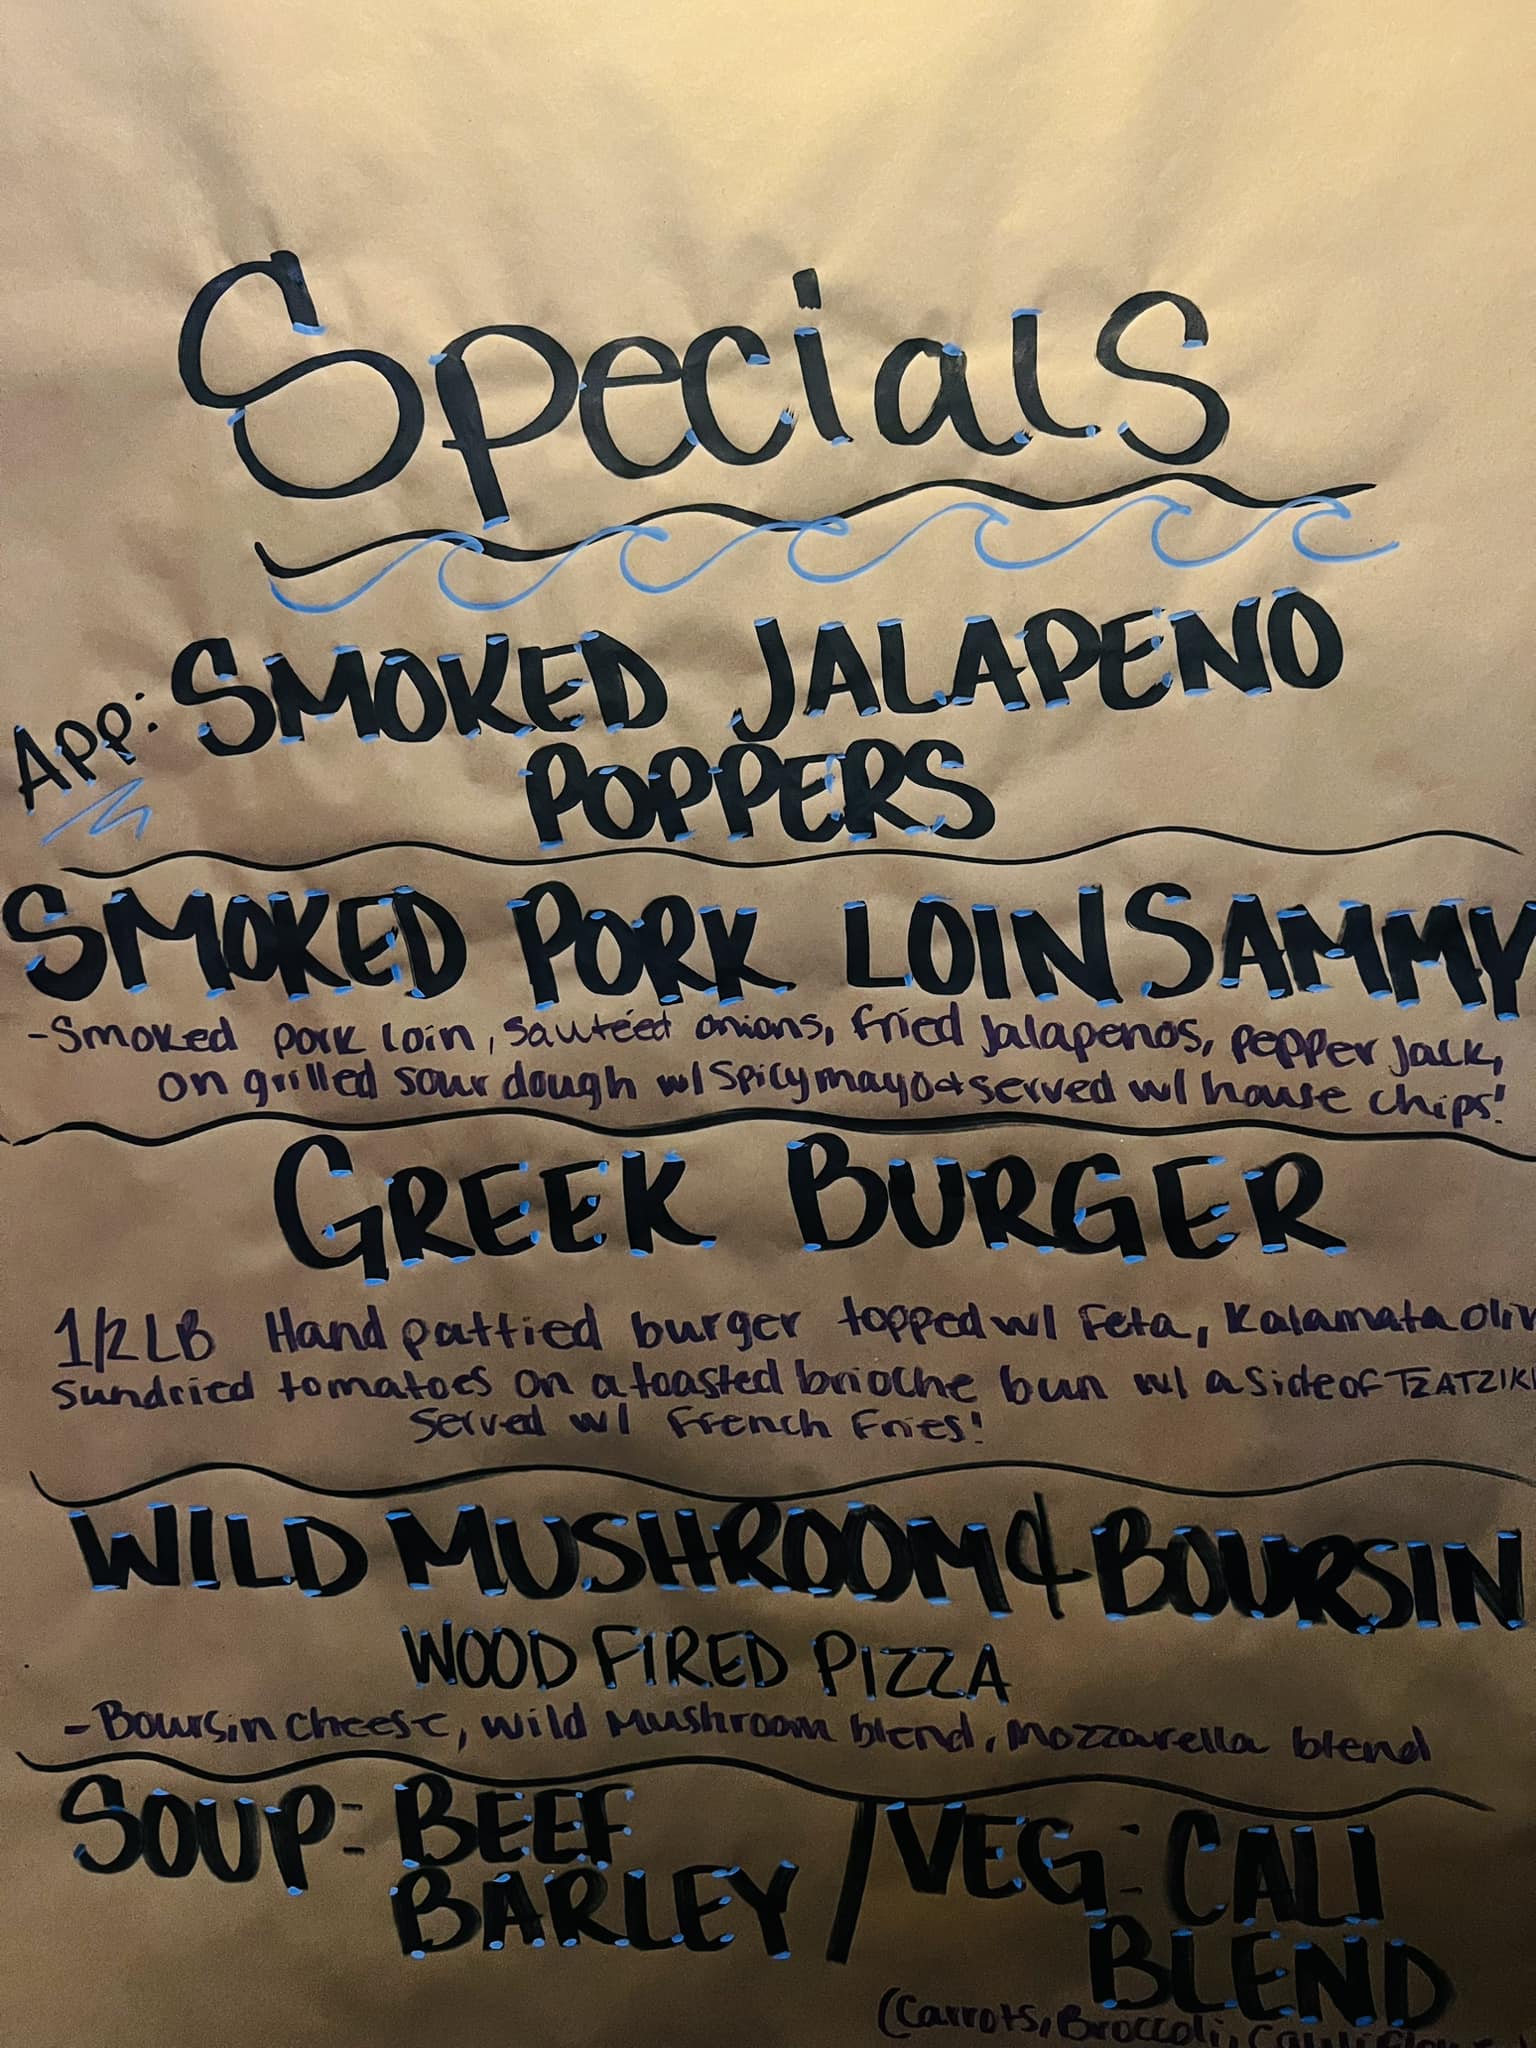 Specials
App: SMOKED JALAPENO
POPPERS
SMOKED PORK LOIN SAMMY
-Smoked pork loin, sautéed onions, fried Jalapenos, pepper jack,
on grilled sour dough w/ spicy mayo & served w/ house chips!
GREEK BURGER
1/2 LB Hand pattied burger topped w/ Feta, Kalamata Oliv
sundried tomatoes on a toasted brioche bun w/ a side of TZATZIKI
served w/ French Fries!
WILD MUSHROOM & BOURSIN
WOOD FIRED PIZZA
-Boursin cheese, wild mushroom blend, mozzarella blend
SOUP: BEEF / VEG: CALI
BARLEY BLEND
(Carrots, Broccoli, Cauliflower